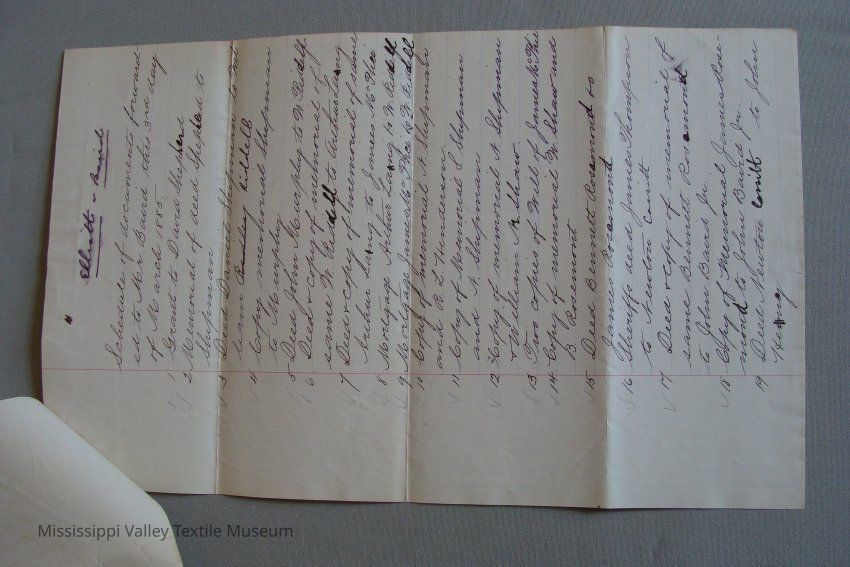 Elliott v Baird
Schedule of documents forward-
ed to Mr Baird this 3rd day
of March 1885
1 Grant to David Sheperd
2 Memorial of deed Sheperd to
Shipman
3 Deed Daniel Shipman to Wil
liam Riddell
4 Copy memorial Shipman
to Murphy
5 Deed John Murphy to W Riddell
6 Deed & copy of memorial of
same W Riddell to Arthur Lang
7 Deed & copy of memorial of same
Arthur Lang to James McPhee
8 Mortgage Arthur Lang to W Riddell
9 Mortgage James McPhee to W Riddell
10 Copy of memorial N Shipman
and R L Henderson
11 Copy of Memorial S Shipman
and N Shipman
12 Copy of memorial N Shipman
& William K Shaw
13 Two copies of Will of James McPhee
14 Copy of memorial W Shaw and
B Rosmont
15 Deed Bennett Rosamond to
James Rosamond
16 Sheriffs deed James Thompson
to Newton Cavitt
17 Deed & copy of memorial of
same Bennett Rosamond
to John Baird Jn
18 Copy of Memorial James Rosa-
mond to John Baird Jn
19 Deed Newton Cavitt to John
Mississippi Valley Textile Museum